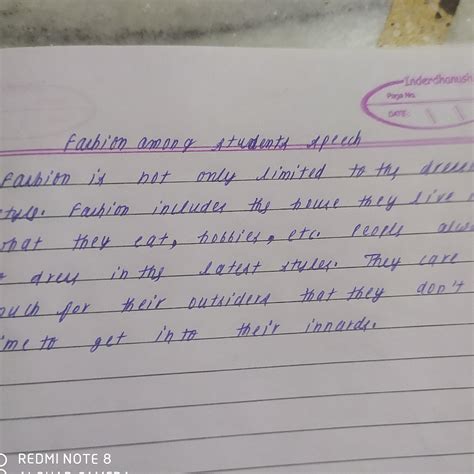 Inder Dhanush
Page No.
DATE:
Fashion among students speech
Fashion is not only limited to the dress
style. Fashion includes the house they live
what they eat, hobbies, etc. People
dress in the latest styles. They care
much for their outsiders that they don't
time to get into their innards.
REDMI NOTE 8